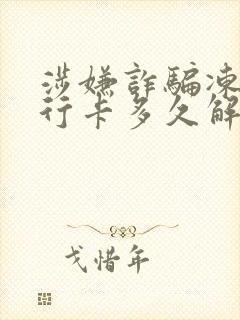 涉嫌詐騙凍
行卡多久解
戈惜年